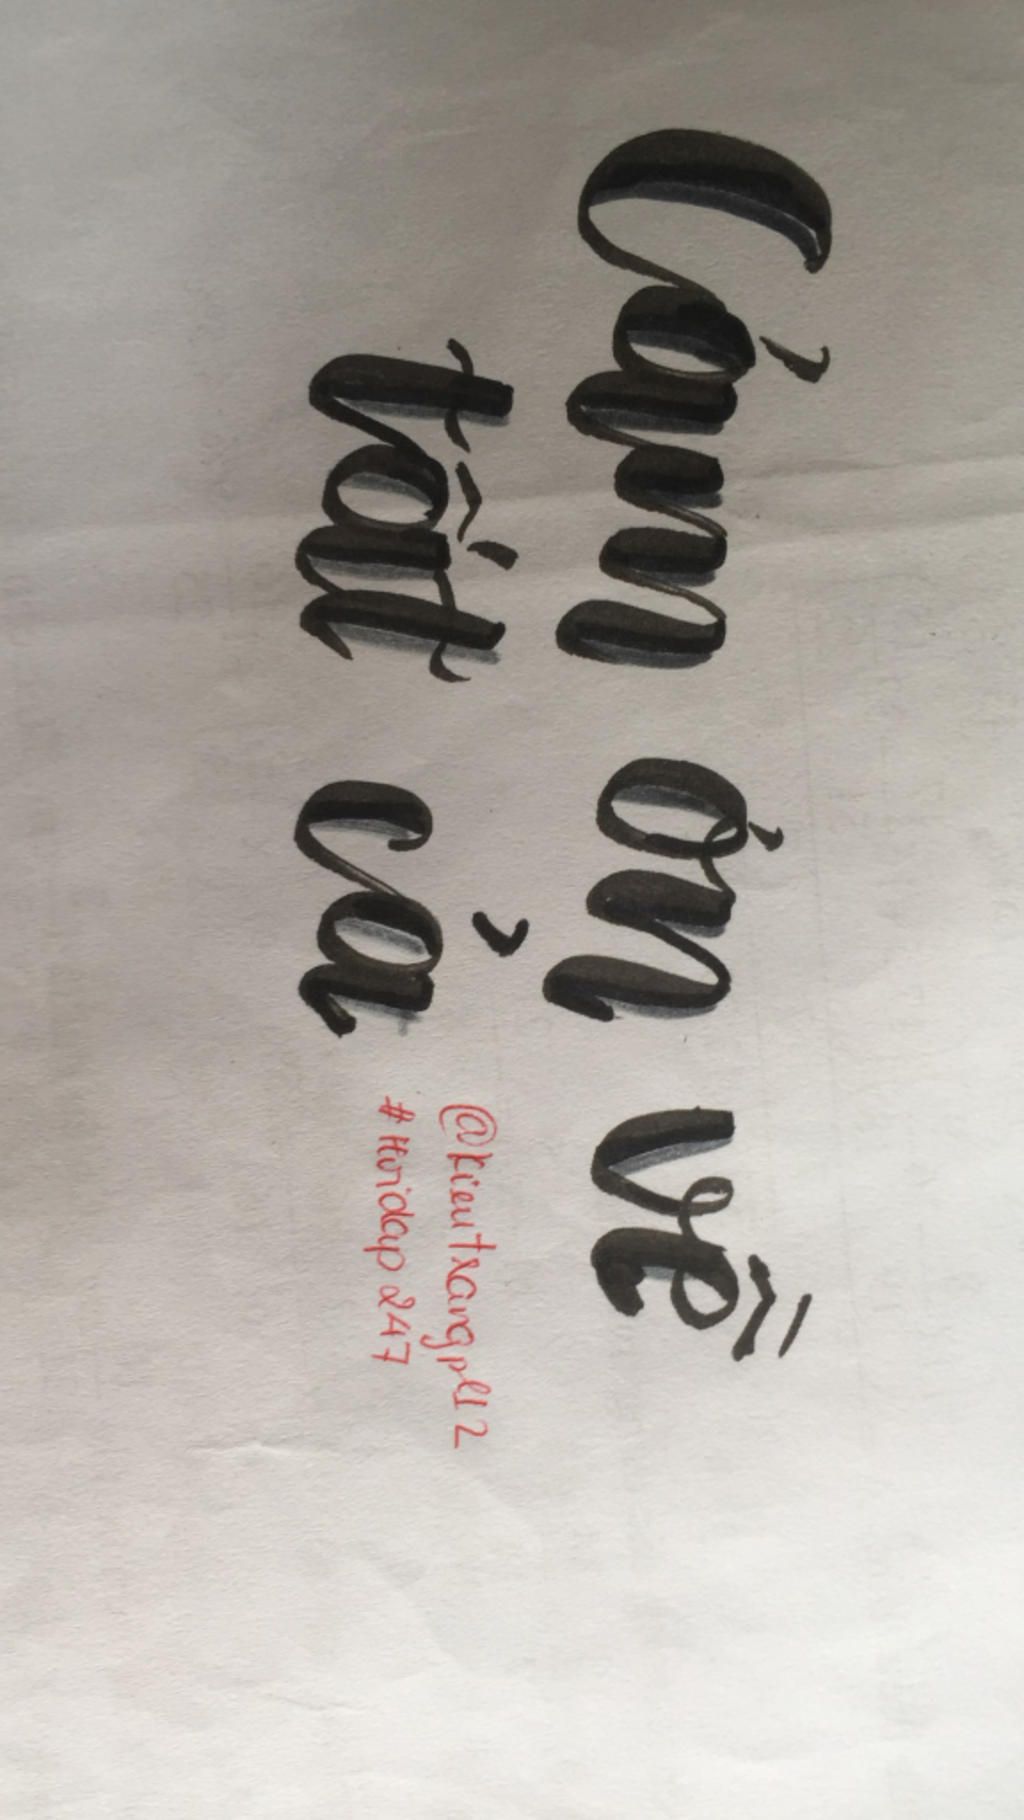 Cảm ơn về
tất cả
@kieutrangpl12
#Hoidap247